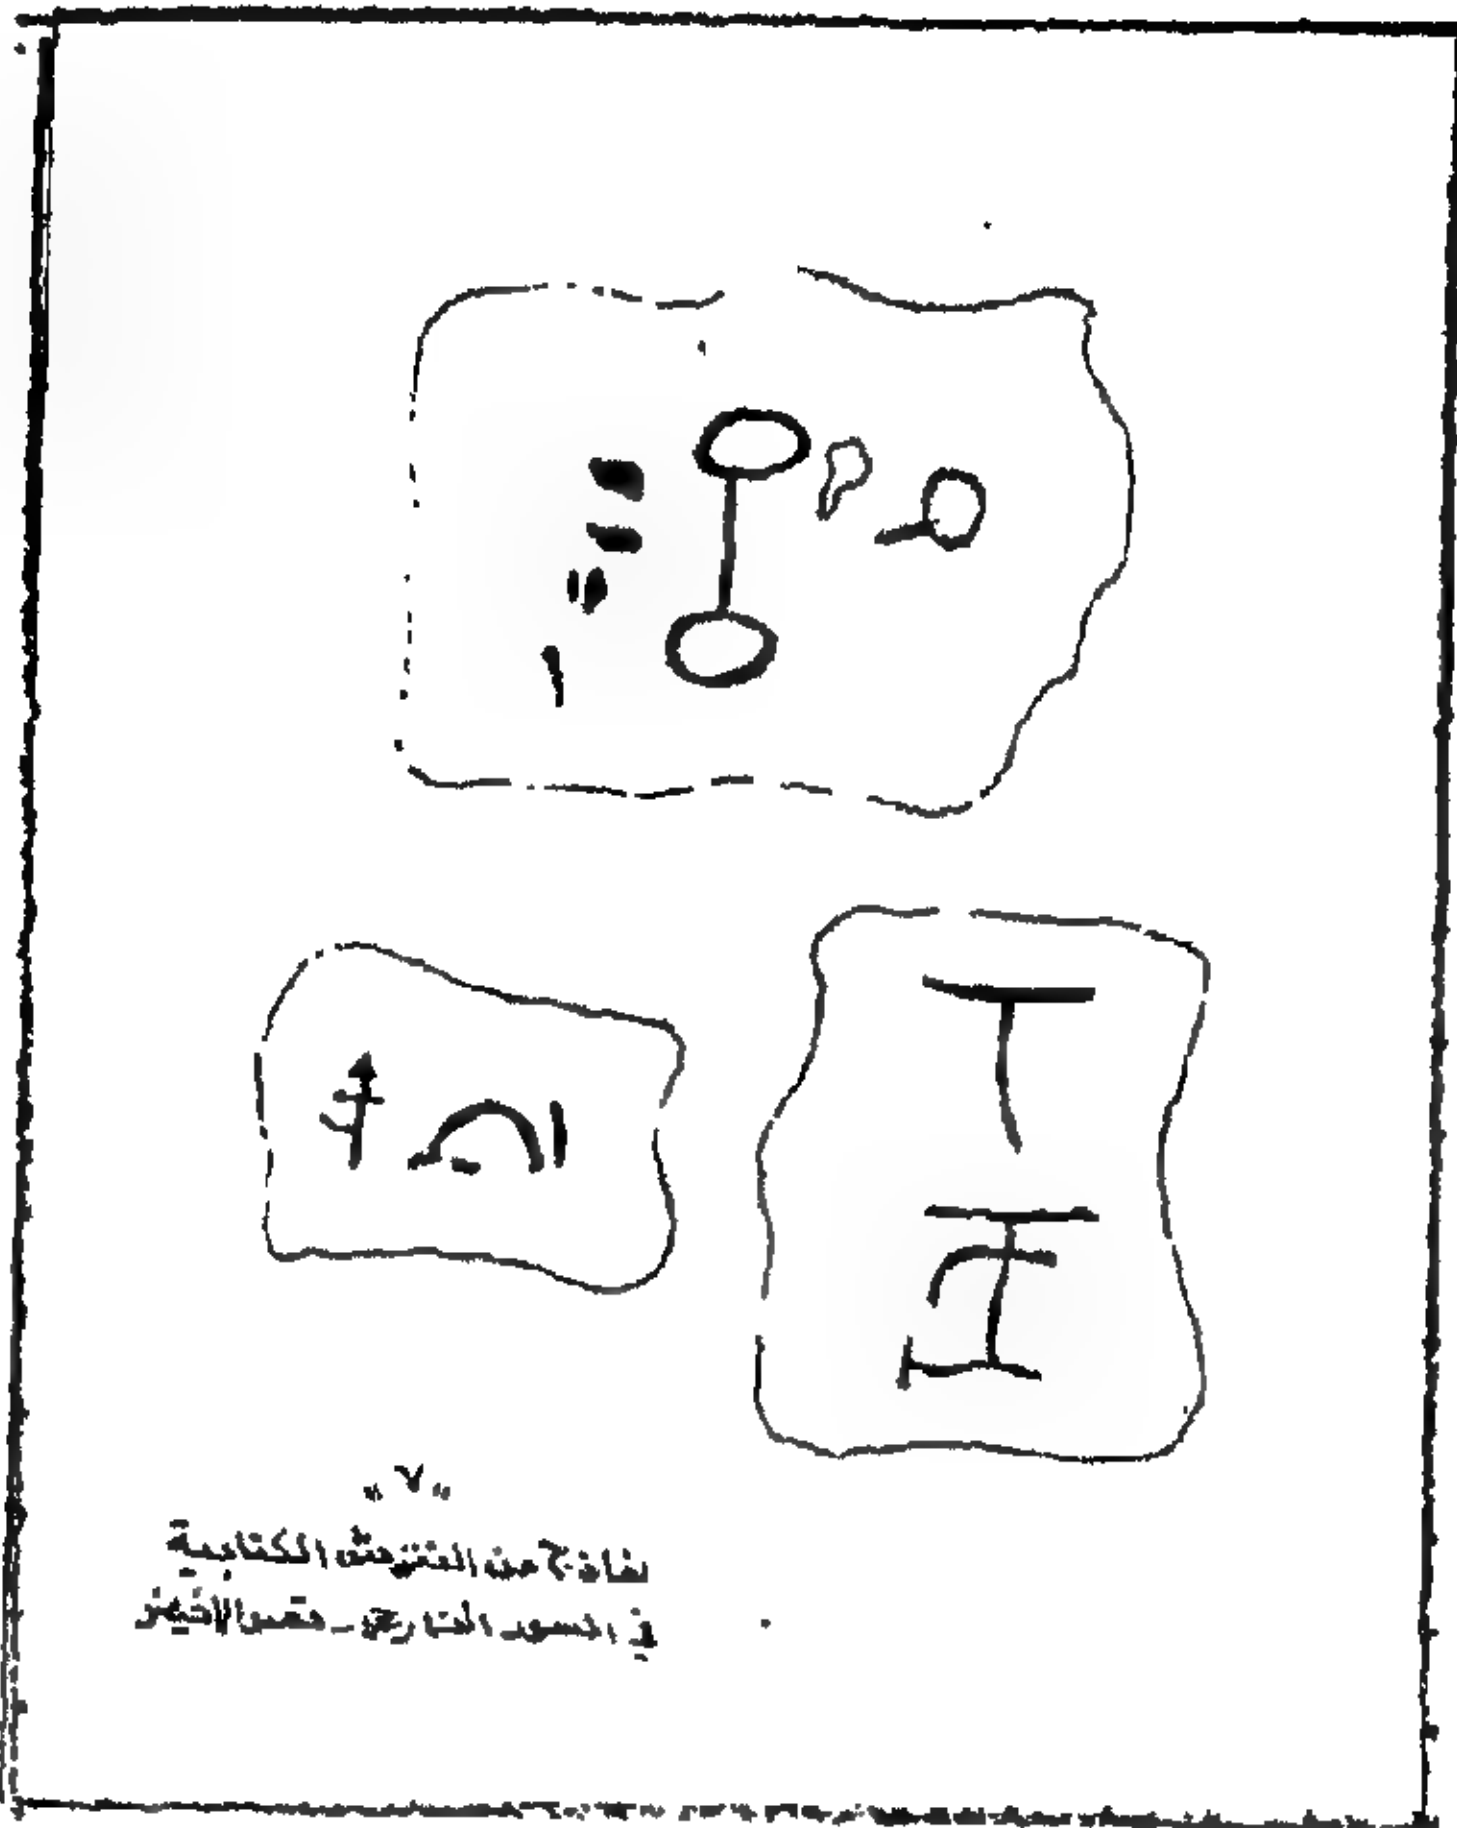 "٧"
نماذج من النقوش الكتابية
في السور الخارجي - قصر الاخيضر